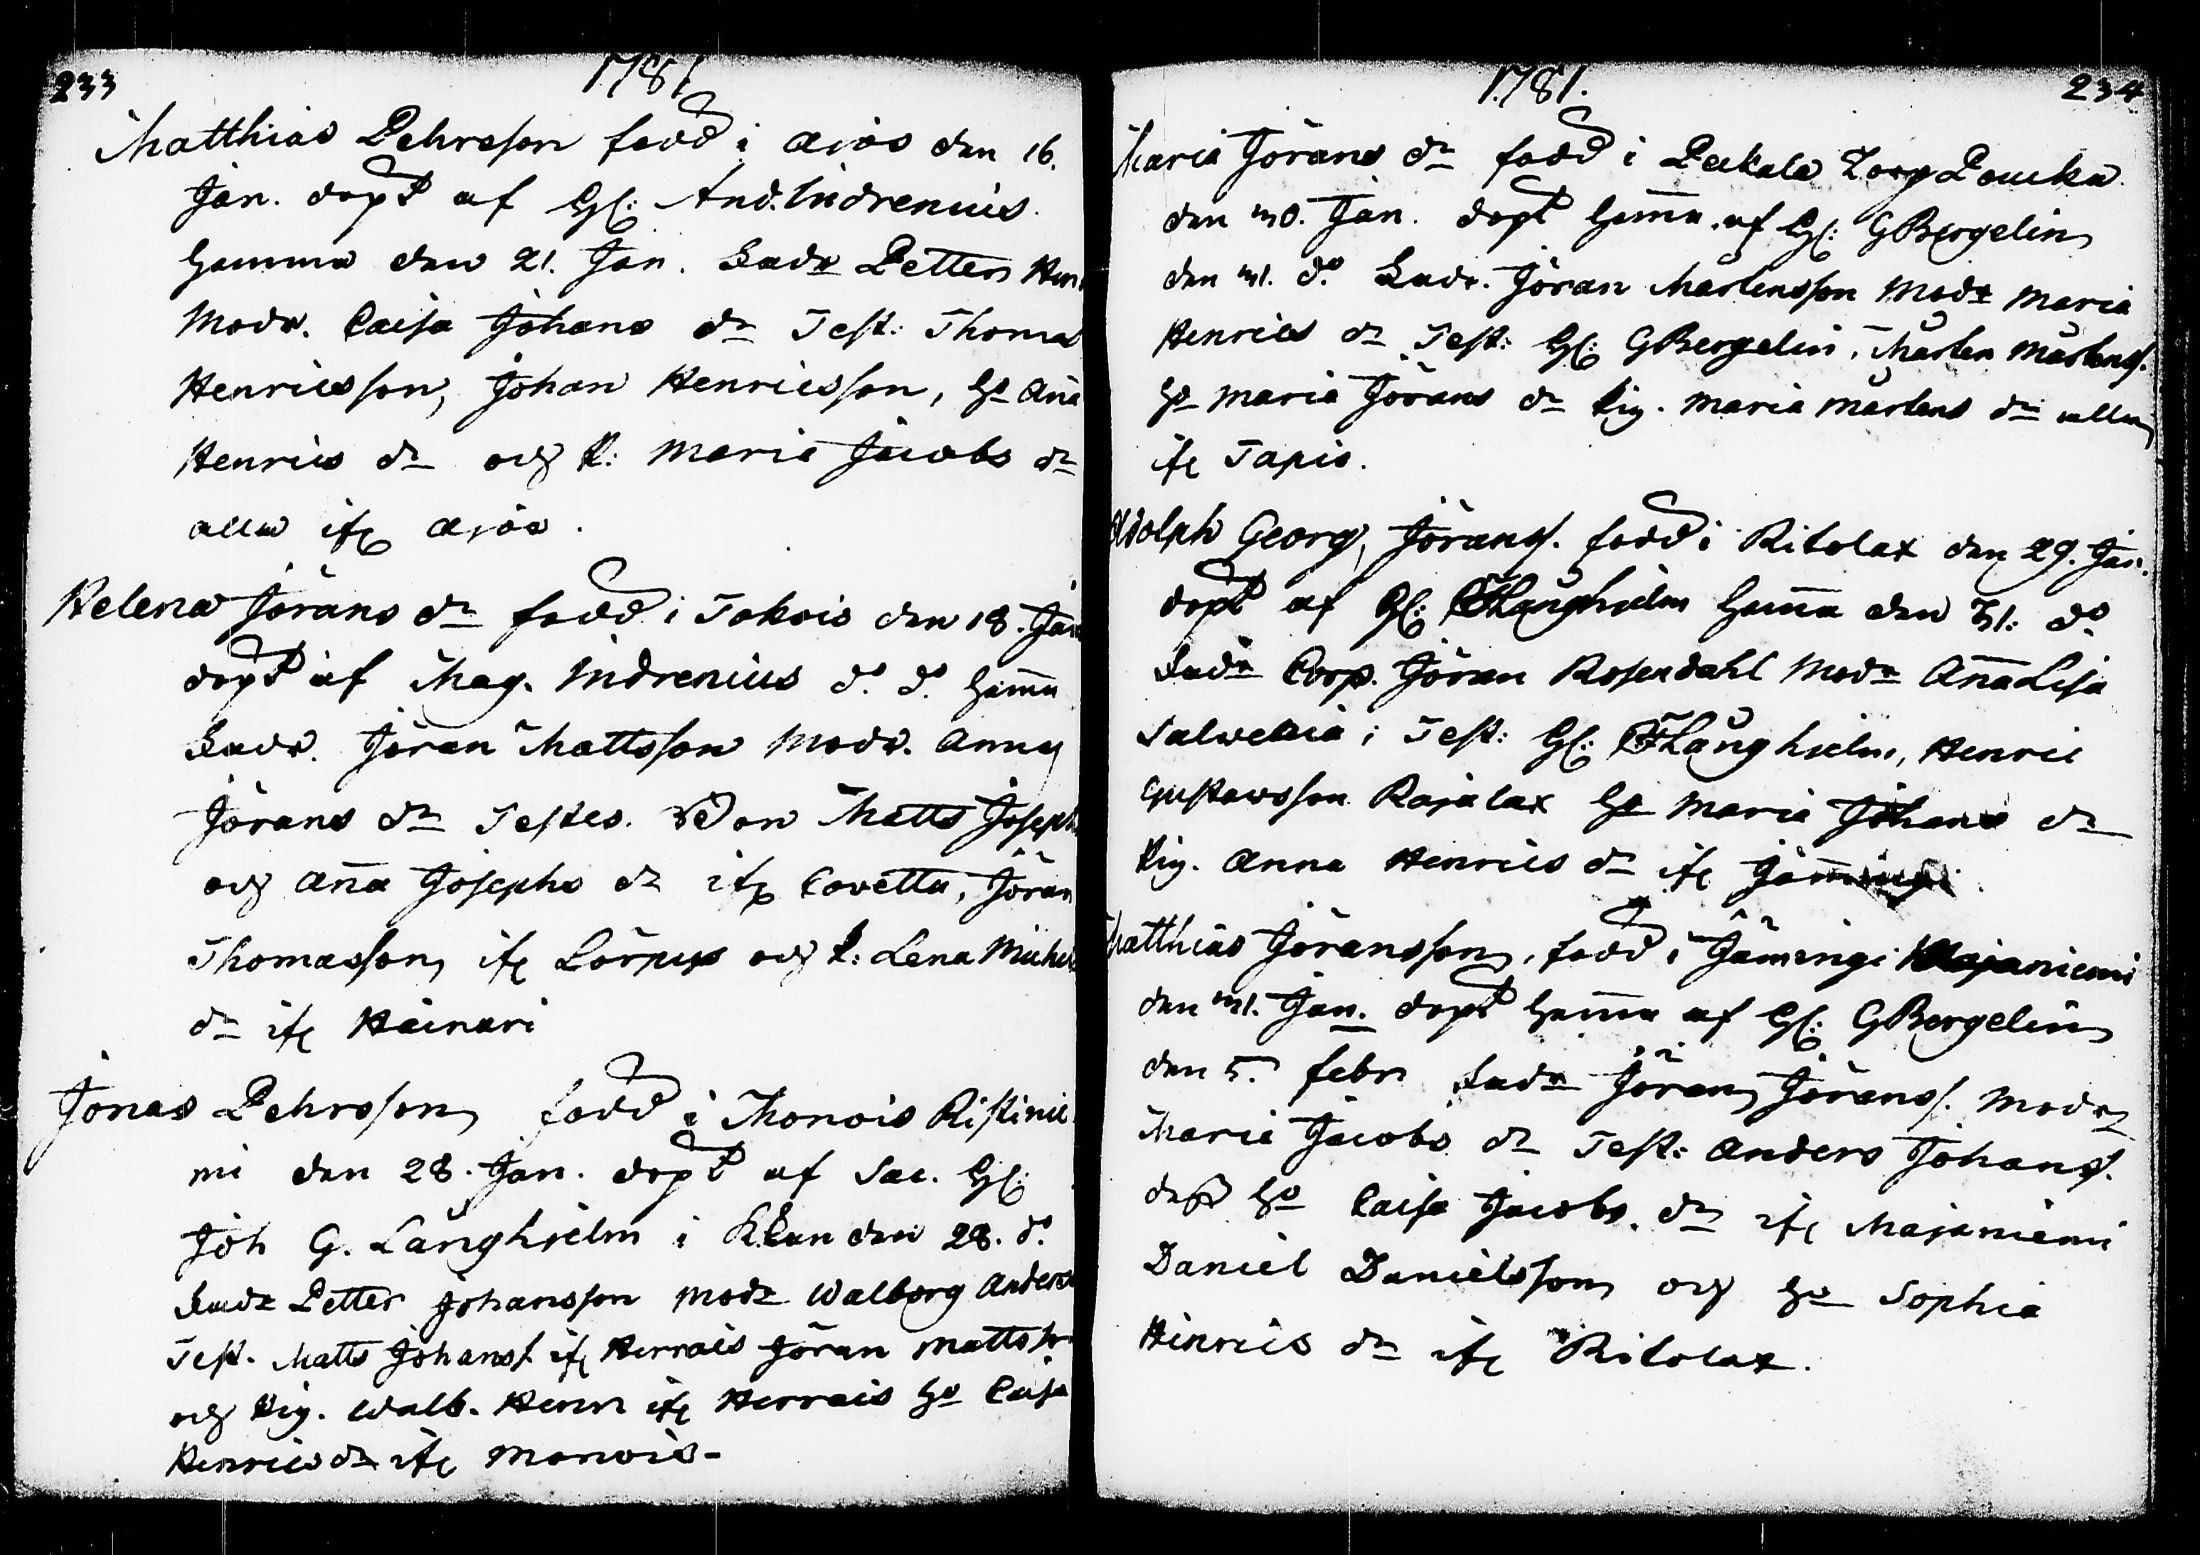 233
1781
Matthias Pehrsson född i Ajos den 16.
Jan. dopt af H: And. Indrenius
hemma den 21. Jan. Fadr Petter Hen
Modr. Caisa Johans dr Test: Thomas
Henricsson, Johan Henricsson, H. Aña
Henrics dr och P: Maria Jacobs dr
alla ifr Ajos.
Helena Jörans dr född i Tokois den 18. Jan
dopt af Mag. Indrenius d:o d:o hem̄a
Fadr. Jöran Mattsson Modr. Anna
Jörans dr Testes. Matts Joseph
och Aña Josephs dr ifr Covetta, Jöran
Thomasson ifr Lörpys och P: Lena Michels
dr ifr Hainari
Jonas Pehrsson född i Monois Ristinie
mi den 28. Jan. dopt af Sac. H:
Joh G. Långhielm i den 28. d:o
Fadr Petter Johansson Modr Walborg Anders
Test. Matts Johans. ifr Herrais Jöran Mattsson
och Pig. Walb. Henr ifr Herrais H. Caisa
Henrics dr ifr Monois-
1781.
234
Maria Jörans dr född i Peckala Torp Poucka
den 30. Jan. dopt hem̄a af H: GBergelin
den 31. d:o Fadr. Jöran Mårtensson Modr Maria
Henrics dr Test: H: GBergelin, Mårten Mårtens.
H. Maria Jörans dr Pig. Maria Mårtens dr alla
ifr Tapio.
Adolph Georg Jörans. född i Ritolax den 29. Jan.
dopt af H: Långhielm hem̄a den 31: d:o
Fadr Corp. Jöran Rosendahl Modr Aña Lisa
Salwenia; Test: H: Långhielm, Henric
Gustawsson Rajalax H. Maria Johans dr
Pig. Anna Henrics dr ifr Jäm̄ingi.
Matthias Jöransson, född i Jämingi Majaniemi
den 31. Jan. dopt hem̄a af H: GBergelin
den 5. febr Fadr Jöran Jörans. Modr
Maria Jacobs dr Test: Anders Johans.
dess H. Caisa Jacobs. dr ifr Majaniemi
Daniel Danielsson och H. Sophia
Henrics dr ifr Ritolax.